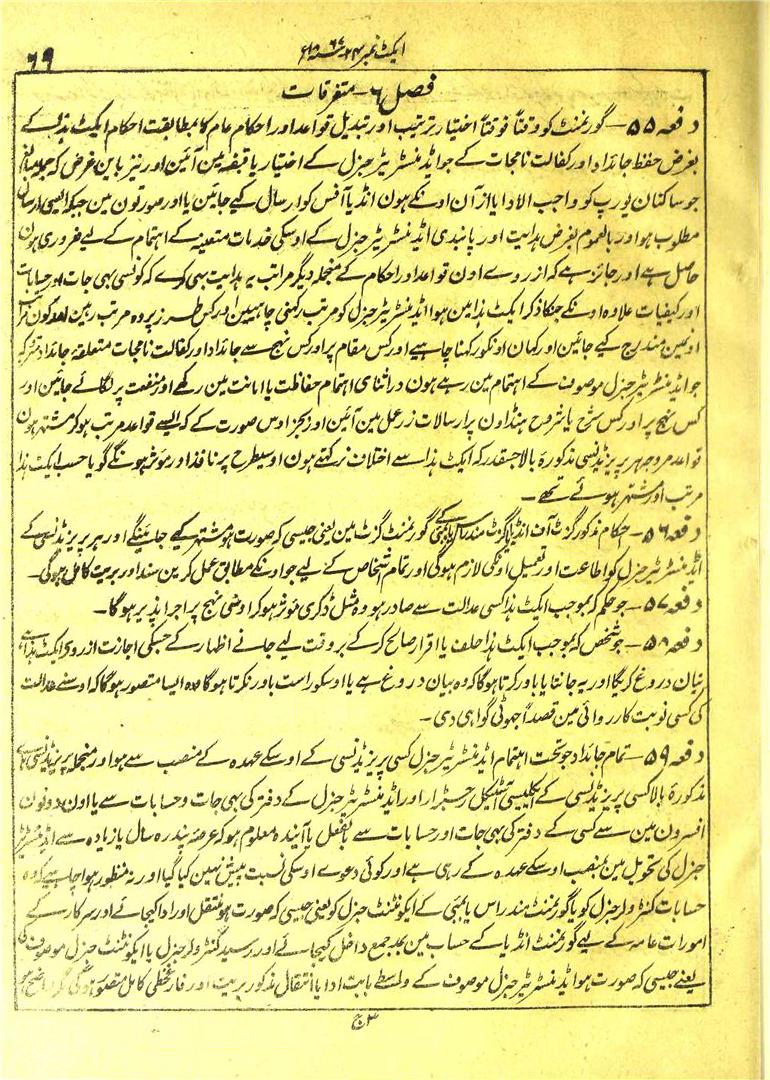 ایکٹ نمبر ۲۴ سنہ ۱۸۶۷ء
۶۹
فصل ۶ - متفرقات
دفعہ ۵۵ - گورنمنٹ کو وقتاً فوقتاً اختیار ترتیب اور تبدیل قواعد اور احکام عام کا بمطابقت احکام ایکٹ ہذا کے
بغرض حفظ جائداد اور کفالت نامجات کے جو ایڈمنسٹریٹر جنرل کے اختیار یا قبضہ مین آئین اور نیز باین غرض کہ جو مبالغ
جو ساکنان یورپ کو واجب الادا یا از آن اونکے ہون انڈیا آفس کو ارسال کیے جائین یا اور صورتون مین جبکہ ایسی ارسال
مطلوب ہو اور بالعموم بغرض ہدایت اور پابندی ایڈمنسٹریٹر جنرل کے اوسکی خدمات متعینہ کے اہتمام کے لیے ضروری ہون
حاصل ہے اور جائز ہے کہ از روے اون قواعد اور احکام کے منجملہ دیگر مراتب یہ ہدایت بھی کرے کہ کونسی بہی جات اور حسابات
اور کیفیات علاوہ اونکے جنکا ذکر ایکٹ ہذا مین ہوا ایڈمنسٹریٹر جنرل کو مرتب رکھنی چاہیین اور کس طرز پر وہ مرتب رہین اور کون مراتب
اونمین مندرج کیے جائین اور کہان اونکو رکھنا چاہیے اور کس مقام پر اور کس نہج سے جائداد اور کفالت نامجات متعلقہ جائداد متروکہ
جو ایڈمنسٹریٹر جنرل موصوف کے اہتمام مین رہے ہون در اثنای اہتمام حفاظت یا امانت مین رکھے اور منفعت پر لگائے جائین اور
کس نہج پر اور کس شرح یا شروح ہنڈاون پر ارسالات زر عمل مین آئین اور بجز اوس صورت کے کہ ایسے قواعد مرتب ہو کر مشتہر ہون
قواعد مروجہ ہر پریزیڈنسی مذکورہ بالا جسقدر کہ ایکٹ ہذا سے اختلاف نرکھتے ہون اوسیطرح پر نافذ اور موثر ہونگے گویا حسب ایکٹ ہذا
مرتب اور مشتہر ہوئے تھے -
دفعہ ۵۶ - احکام مذکور گزٹ آف انڈیا یا گزٹ مندراس یا بمبئی کے گورنمنٹ گزٹ مین یعنی جیسی کہ صورت ہو مشتہر کیے جائینگے اور ہر پریزیڈنسی کے
ایڈمنسٹریٹر جنرل کو اطاعت اور تعمیل اونکی لازم ہوگی اور تمام اشخاص کے لیے جو اونکے مطابق عمل کرین سند اور بریت کامل ہوگی -
دفعہ ۵۷ - جو حکم کہ بموجب ایکٹ ہذا کسی عدالت سے صادر ہو وہ مثل ڈگری موثر ہو کر اوسی نہج پر اجرا پذیر ہوگا -
دفعہ ۵۸ - جو شخص کہ بموجب ایکٹ ہذا حلف یا اقرار صالح کرکے بروقت لیے جانے اظہار کے جسکی اجازت از روی ایکٹ ہذا ہے
بیان دروغ کریگا اور یہ جانتا یا باور کرتا ہوگا کہ وہ بیان دروغ ہے یا اوسکو راست باور نکرتا ہوگا وہ ایسا متصور ہوگا کہ اوسنے عدالت
کی کسی نوبت کارروائی مین قصداً جھوٹی گواہی دی -
دفعہ ۵۹ - تمام جائداد جو تحت اہتمام ایڈمنسٹریٹر جنرل کسی پریزیڈنسی کے اوسکے عہدہ کے منصب سے ہو اور منجملہ پریزیڈنسی ہاے
مذکورہ بالا کسی پریزیڈنسی کے اکلیسی آسٹیکل رجسٹرار اور ایڈمنسٹریٹر جنرل کے دفتر کی بہی جات و حسابات سے یا اون دونون
افسرون مین سے کسی کے دفتر کی بہی جات اور حسابات سے بالفعل یا آیندہ معلوم ہو کہ عرصہ پندرہ سال یا زیادہ سے ایڈمنسٹریٹر
جنرل کی تحویل مین بمنصب اوسکے عہدہ کے رہی ہے اور کوئی دعوے اوسکی نسبت پیش نہین کیا گیا اور نہ منظور ہوا چاہیے کہ وہ
حسابات کنٹرولر جنرل کو یا گورنمنٹ مندراس یا بمبئی کے اکونٹنٹ جنرل کو یعنی جیسی کہ صورت ہو منتقل اور ادا کیجائے اور سرکار کے
امورات عامہ کے لیے گورنمنٹ انڈیا کے حساب مین بمد جمع داخل کیجائے اور رسید کنٹرولر جنرل یا اکونٹنٹ جنرل موصوف کی
یعنے جیسی کہ صورت ہو ایڈمنسٹریٹر جنرل موصوف کے واسطے بابت ادا یا انتقال مذکور بریت اور فارغخطی کامل متصور ہوگی مگر واضح ہو